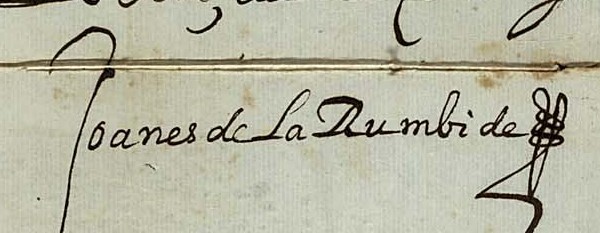 Joanes de La Rumbide